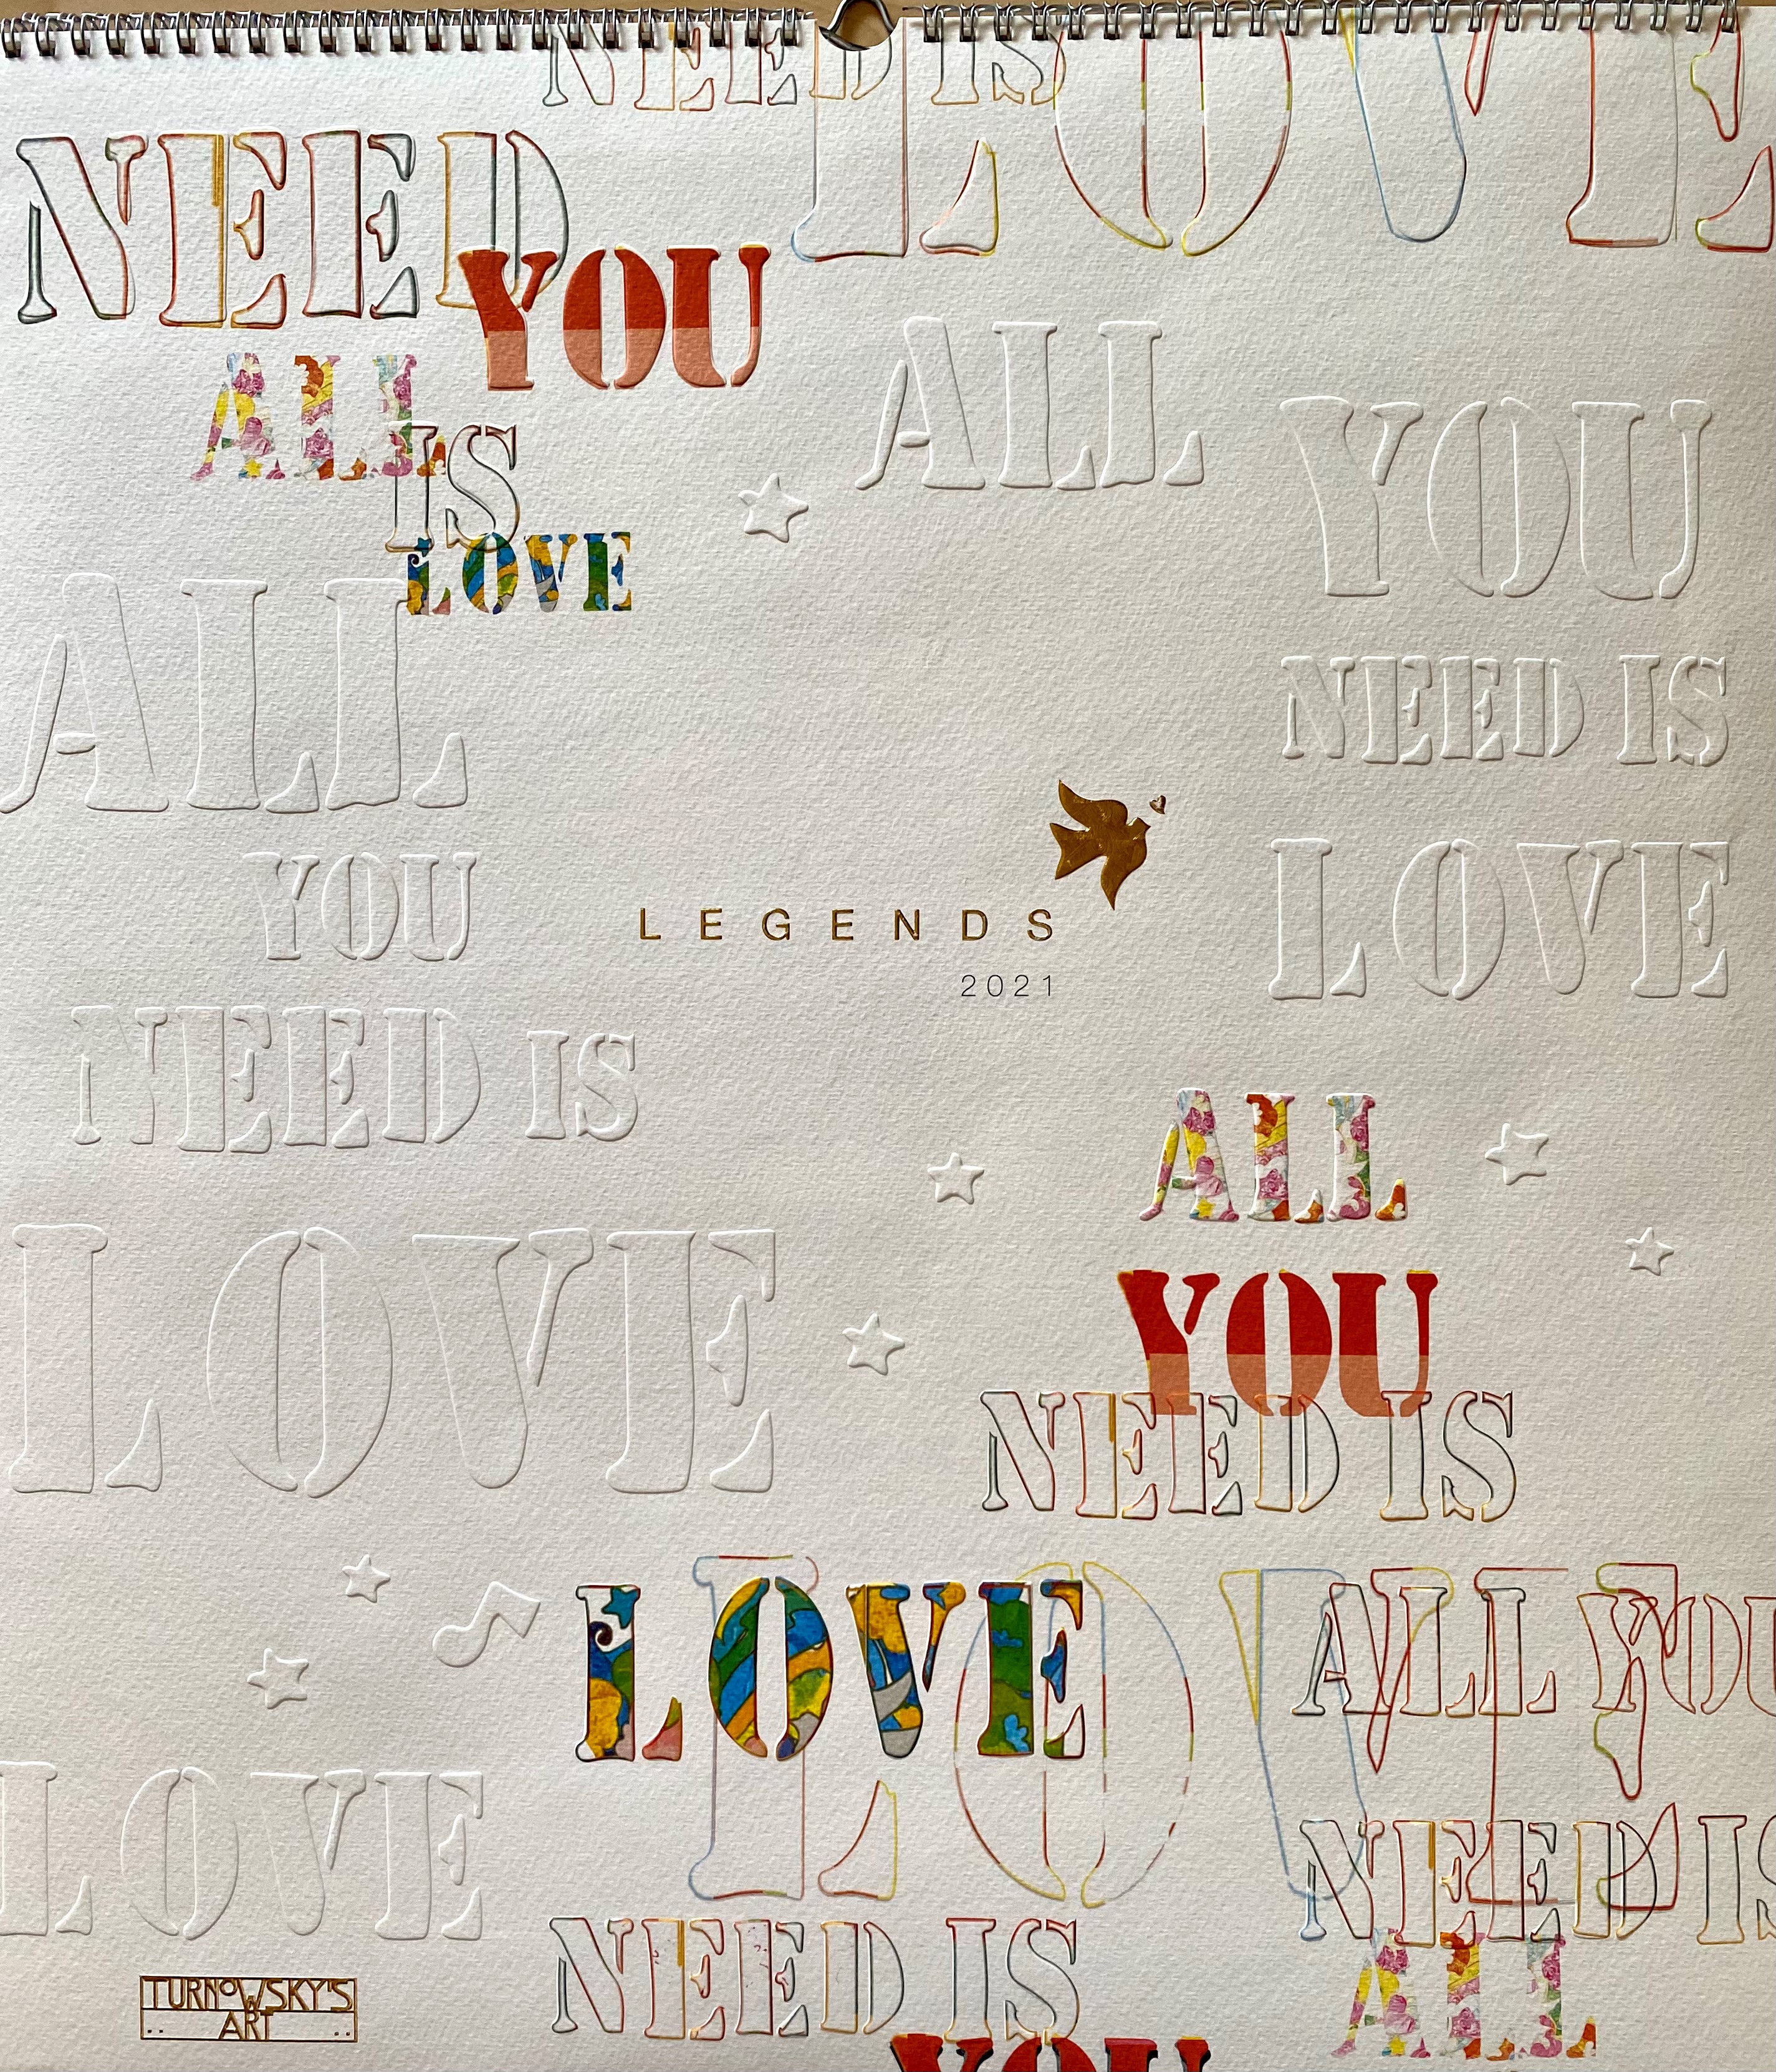 NEED IS
LOVE
NEED
YOU
ALL
IS
LOVE
ALL
YOU
NEED IS
LOVE
ALL
YOU
NEED IS
LOVE
LEGENDS
2021
ALL
YOU
NEED IS
LOVE
LOVE
ALL YOU
NEED IS
ALL
LOVE
NEED IS
YOU
TURNOWSKY'S
ART